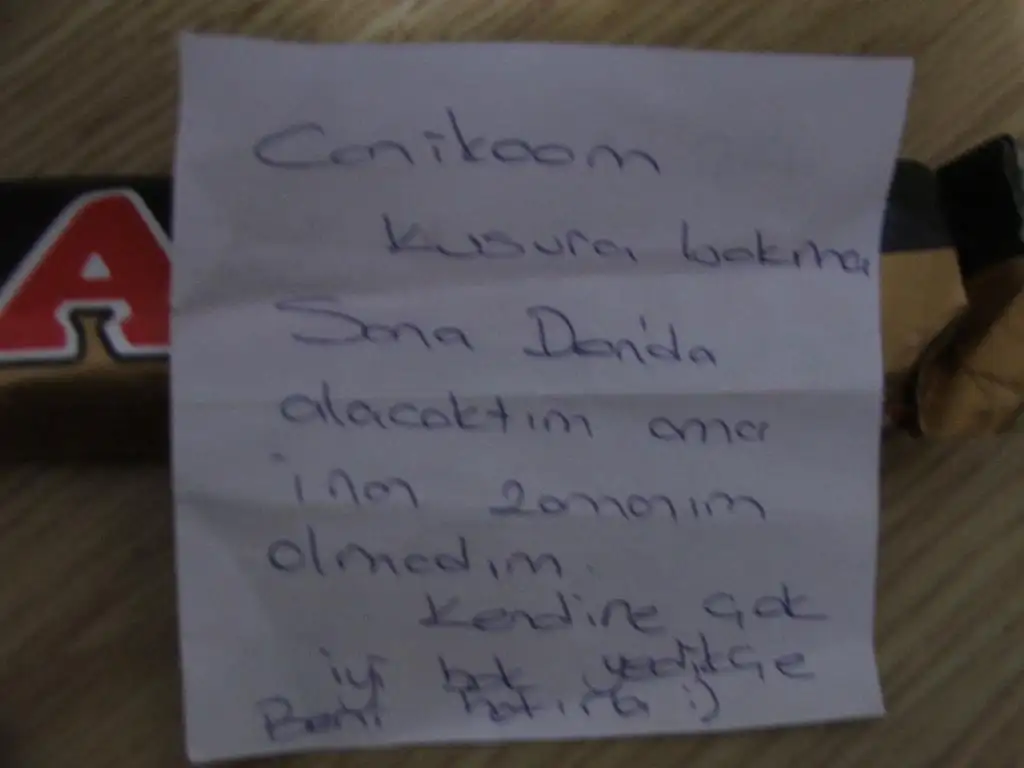 A
Canikoom
Kusura bakma
Sana Danida
alacaktım ama
inan zamanım
olmadım.
Kendine çok
iyi bak yedikçe
Beni hatırla :)